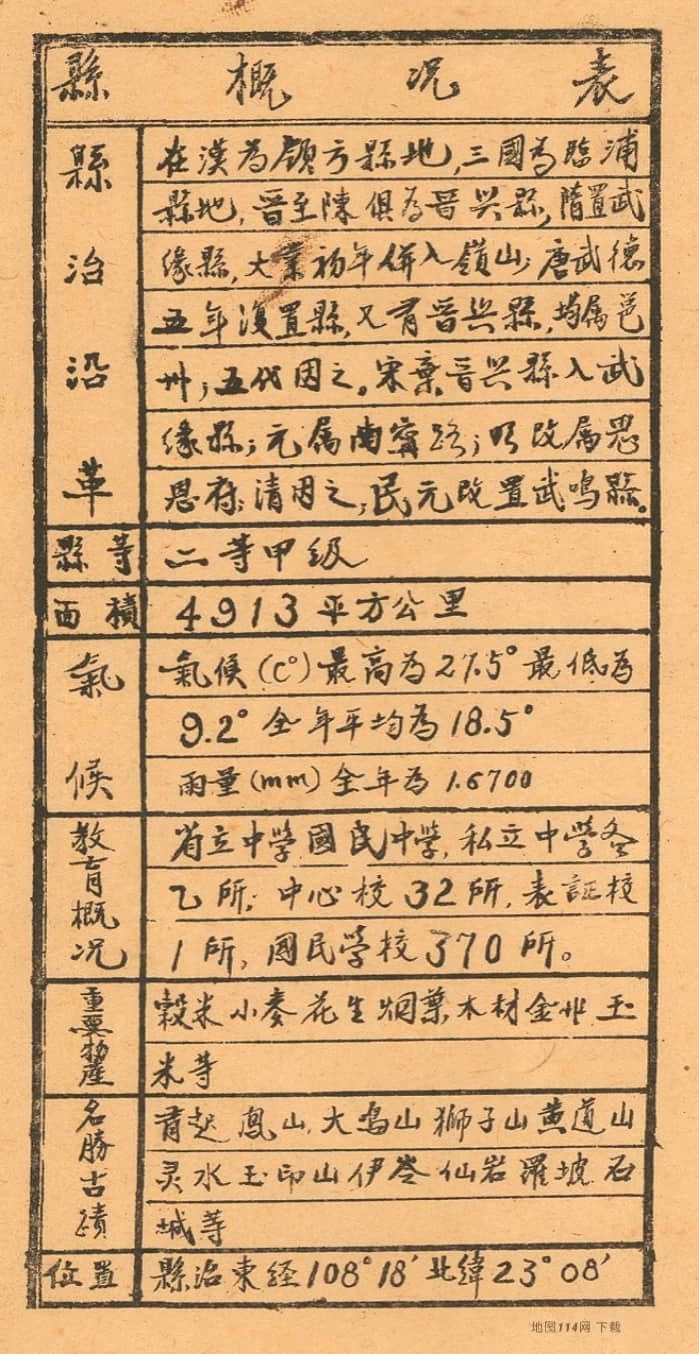 縣概况表
縣治沿革
在漢為領方縣地,三國為臨浦
縣地,晋至陳俱為晋兴縣,隋置武
缘縣,大業初年併入嶺山;唐武德
五年復置縣,又有晋兴縣,均属邕
州;五代因之。宋棄晋兴縣入武
缘縣;元属南寗路;明改属思
恩府;清因之,民元改置武鳴縣。
縣等
二等甲级
面積
4913平方公里
氣候
氣候(C°)最高為27.5°最低為
9.2°全年平均為18.5°
雨量(mm)全年為1.6700
教育概况
省立中學國民中學,私立中學各
乙所;中心校32所,表証校
1所,國民學校370所。
重要物產
穀米小麥花生烟葉木材金卝玉
米等
名勝古蹟
有起鳳山,大鳴山獅子山黄道山
灵水玉印山伊岺仙岩羅坡石
城等
位置
縣治東经108°18′北緯23°08′
地图114网 下载